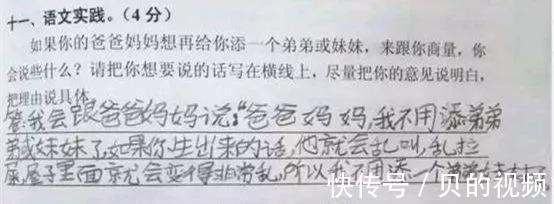 十一、语文实践。(4分)
如果你的爸爸妈妈想再给你添一个弟弟或妹妹，来跟你商量，你
会说些什么？请把你想要说的话写在横线上，尽量把你的意见说明白，
把理由说具体。
答:我会跟爸爸妈妈说:"爸爸妈妈,我不用添弟弟
弟或妹妹了,如果你生出来的话,他就会乱叫,乱拉
屎,屋子里面就会变得非常乱,所以我不用添一个弟弟
快传号 / 贝的视频